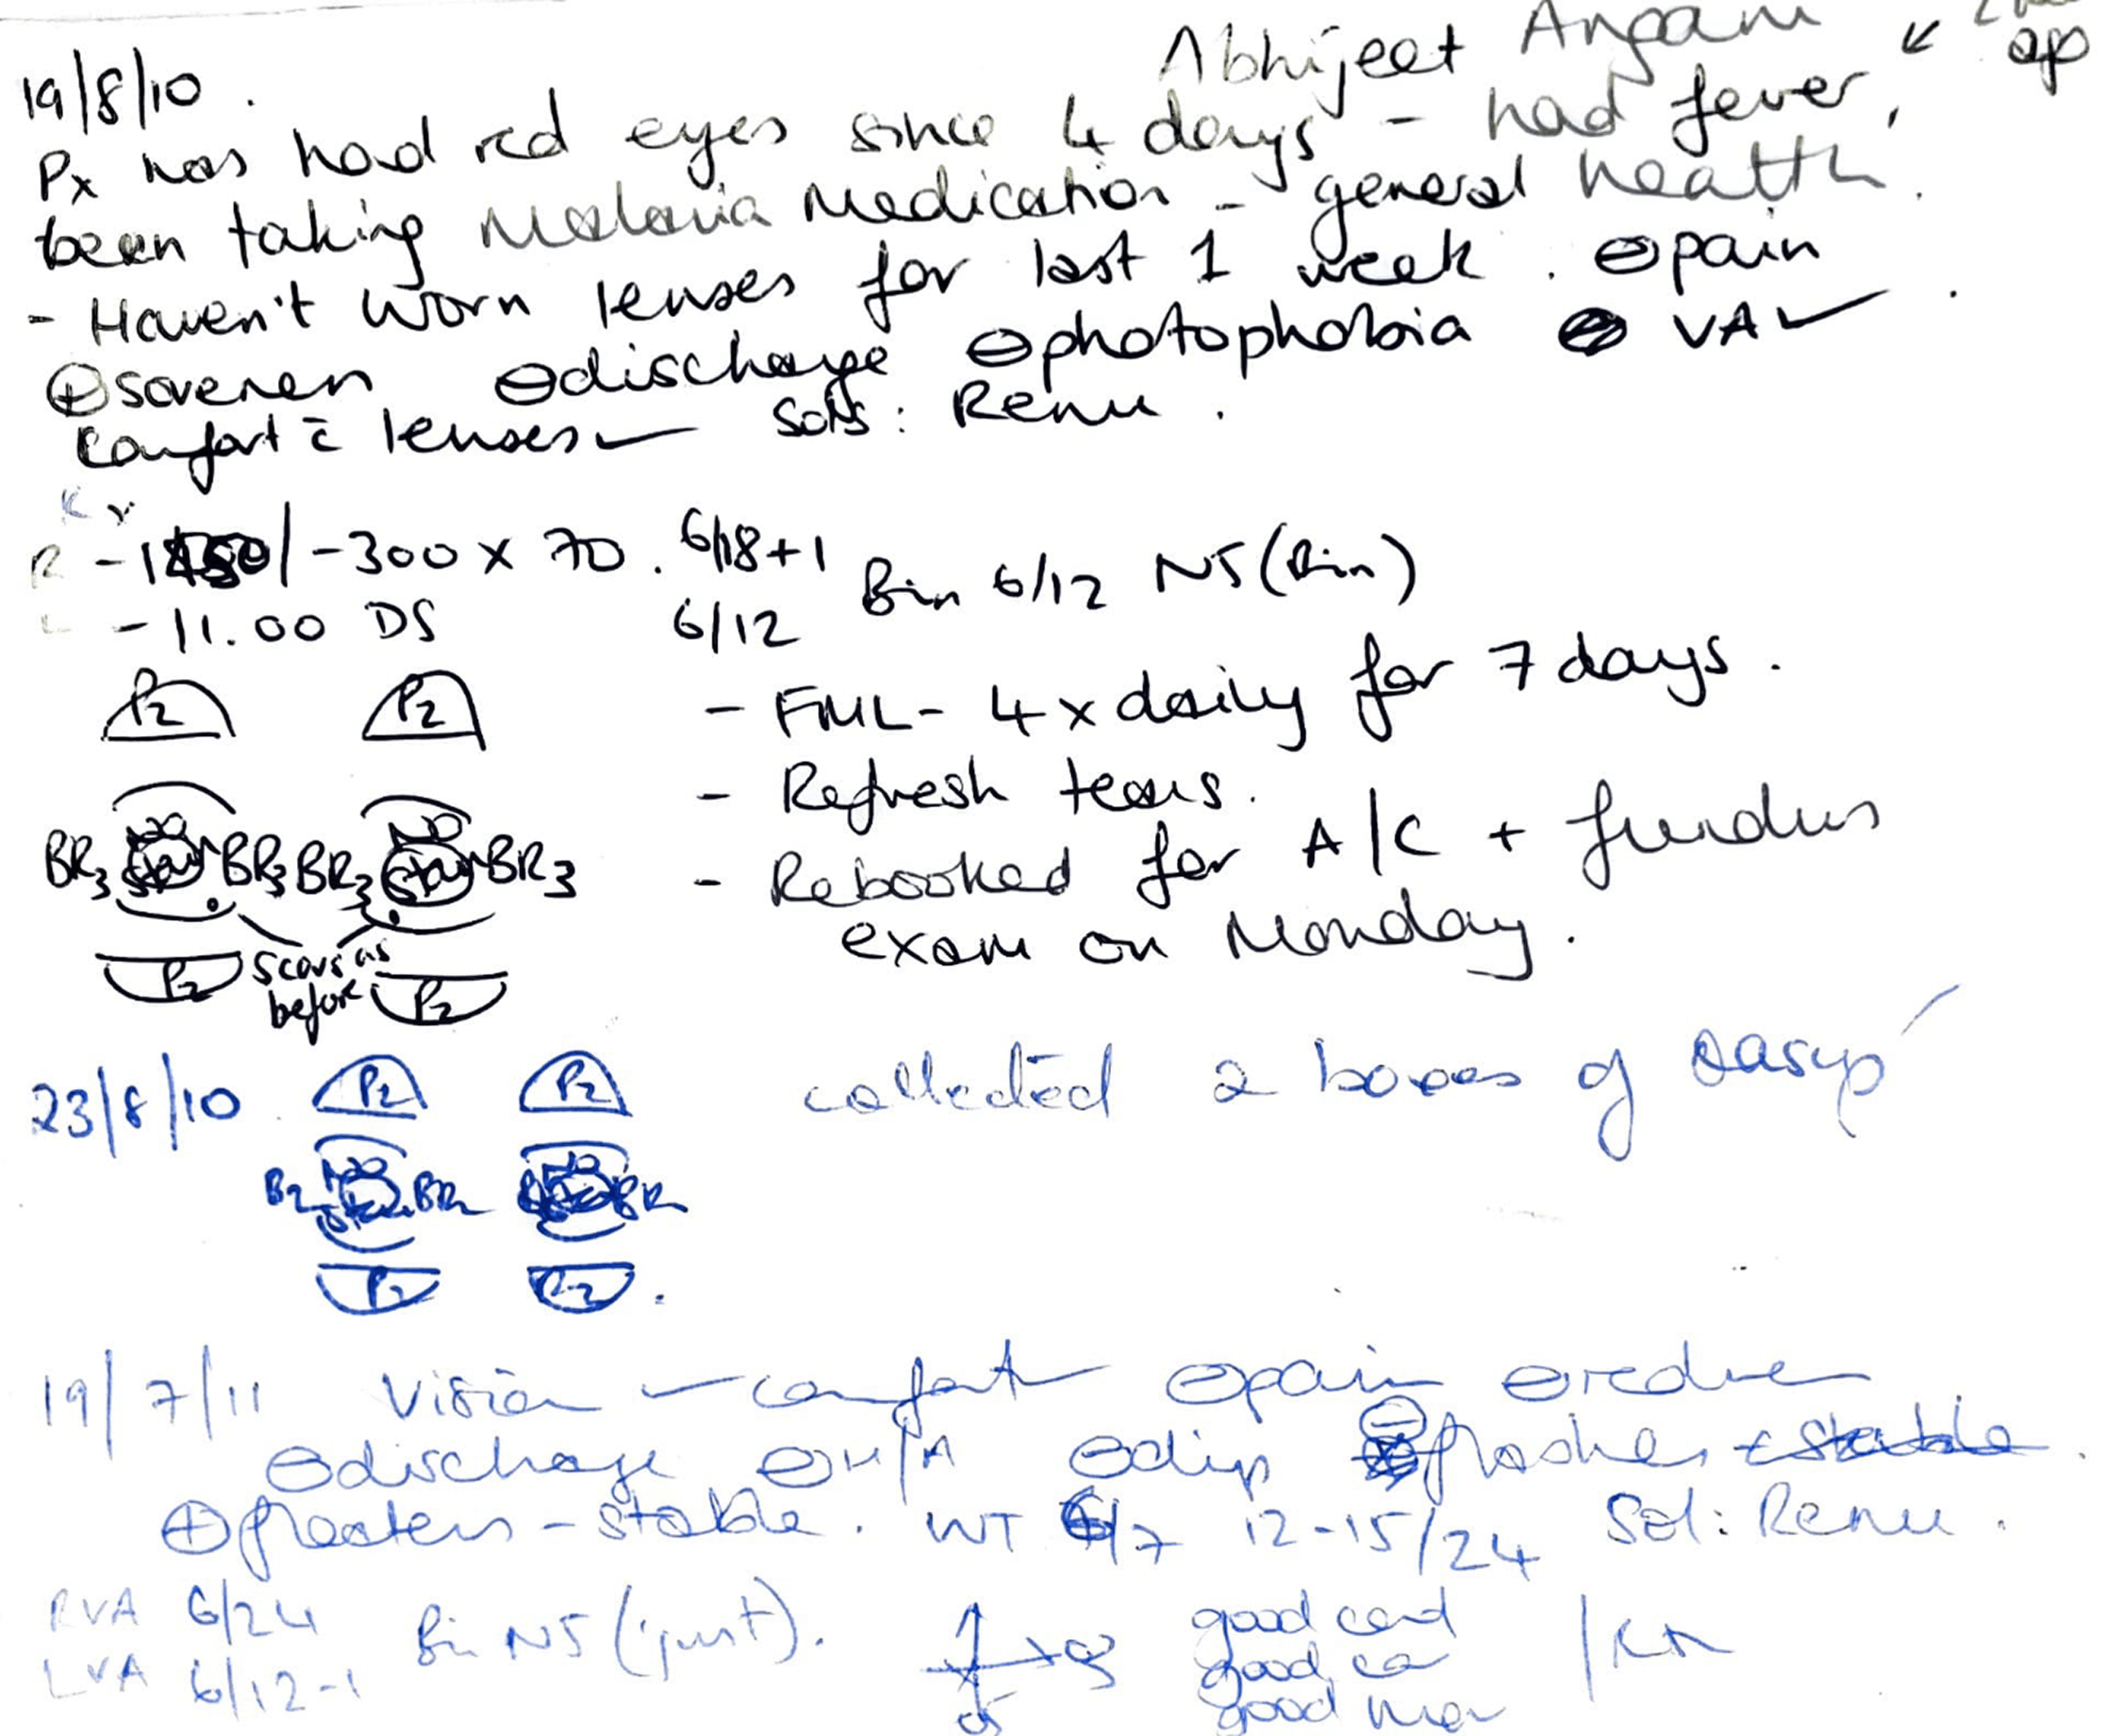 Abhijeet Angani
19/8/10.
Px has had red eyes since 4 days - had fever,
been taking Malaria Medication - general health.
- Haven't worn lenses for last 1 week. ⊖pain
⊕soreness ⊖discharge ⊖photophobia VA✓
Comfort c̄ lenses✓ Sols: Renu.
R - /-300 x 70. 6/18+1
L -11.00 DS 6/12 Bin 6/12 N5 (Bin)
P2 P2
- FML - 4x daily for 7 days.
- Refresh tears.
BR3 BR3 BR3 BR3
- Rebooked for A/C + fundus
exam on Monday.
scars as
before
P2 P2
23/8/10 P2 P2 collected 2 boxes of easy
P2 P2
19/7/11 Vision ✓ comfort ✓ ⊖pain ⊖redness
⊖discharge ⊖H/A ⊖dip ⊖flashes
⊕floaters - stable. WT 6/7 12-15/24 Sol: Renu.
RVA 6/24
LVA 6/12-1
Bin N5 (just).
good cent
good
good mov